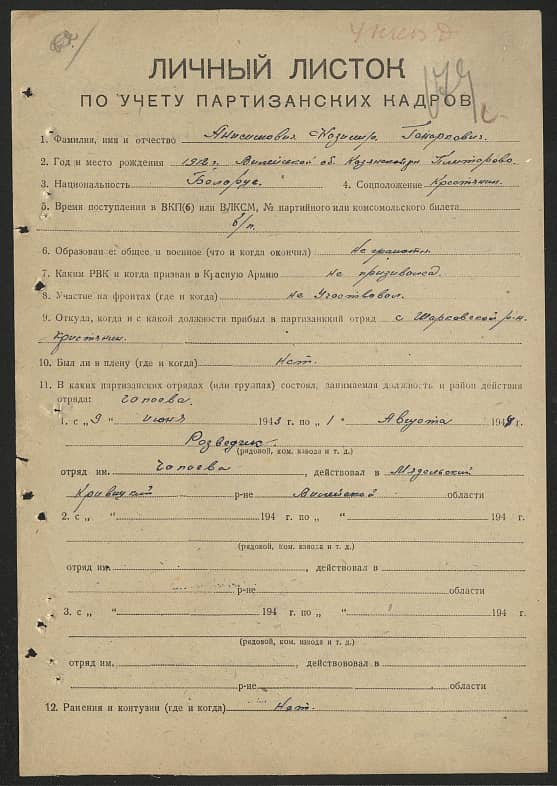 ЛИЧНЫЙ ЛИСТОК
ПО УЧЕТУ ПАРТИЗАНСКИХ КАДРОВ
1. Фамилия, имя и отчество Анисимович Казимир
2. Год и место рождения 1912 г. Вилейской об.
3. Национальность Белорус. 4. Соцположение Крестянин.
5. Время поступления в ВКП(б) или ВЛКСМ, № партийного или комсомольского билета
б/п.
6. Образование: общее и военное (что и когда окончил) Не грамотн
7. Каким РВК и когда призван в Красную Армию не призивался.
8. Участие на фронтах (где и когда) не Участвовал.
9. Откуда, когда и с какой должности прибыл в партизанкий отряд с Шарковской р-н.
Кристянин.
10. Был ли в плену (где и когда) Нет.
11. В каких партизанских отрядах (или группах) состоял, занимаемая должность и район действия
отряда: Чапаева.
1. с „ 9 “ июня 1943 г. по „ 1 “ Августа 1944 г.
Розведчик.
(рядовой, ком. взвода и т. д.)
отряд им. Чапаева, действовал в Мядельский
Кривицкий р-не Вилейской области
2. с „ “ 194 г. по „ “ 194 г.
(рядовой, ком. взвода и т. д.)
отряд им. , действовал в
р-не области
3. с „ “ 194 г. по „ “ 194 г.
(рядовой, ком. взвода и т. д.)
отряд им. , действовал в
р-не области
12. Ранения и контузии (где и когда) Нет.